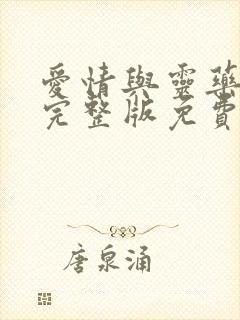 愛情與靈藥
完整版免費
唐泉涌